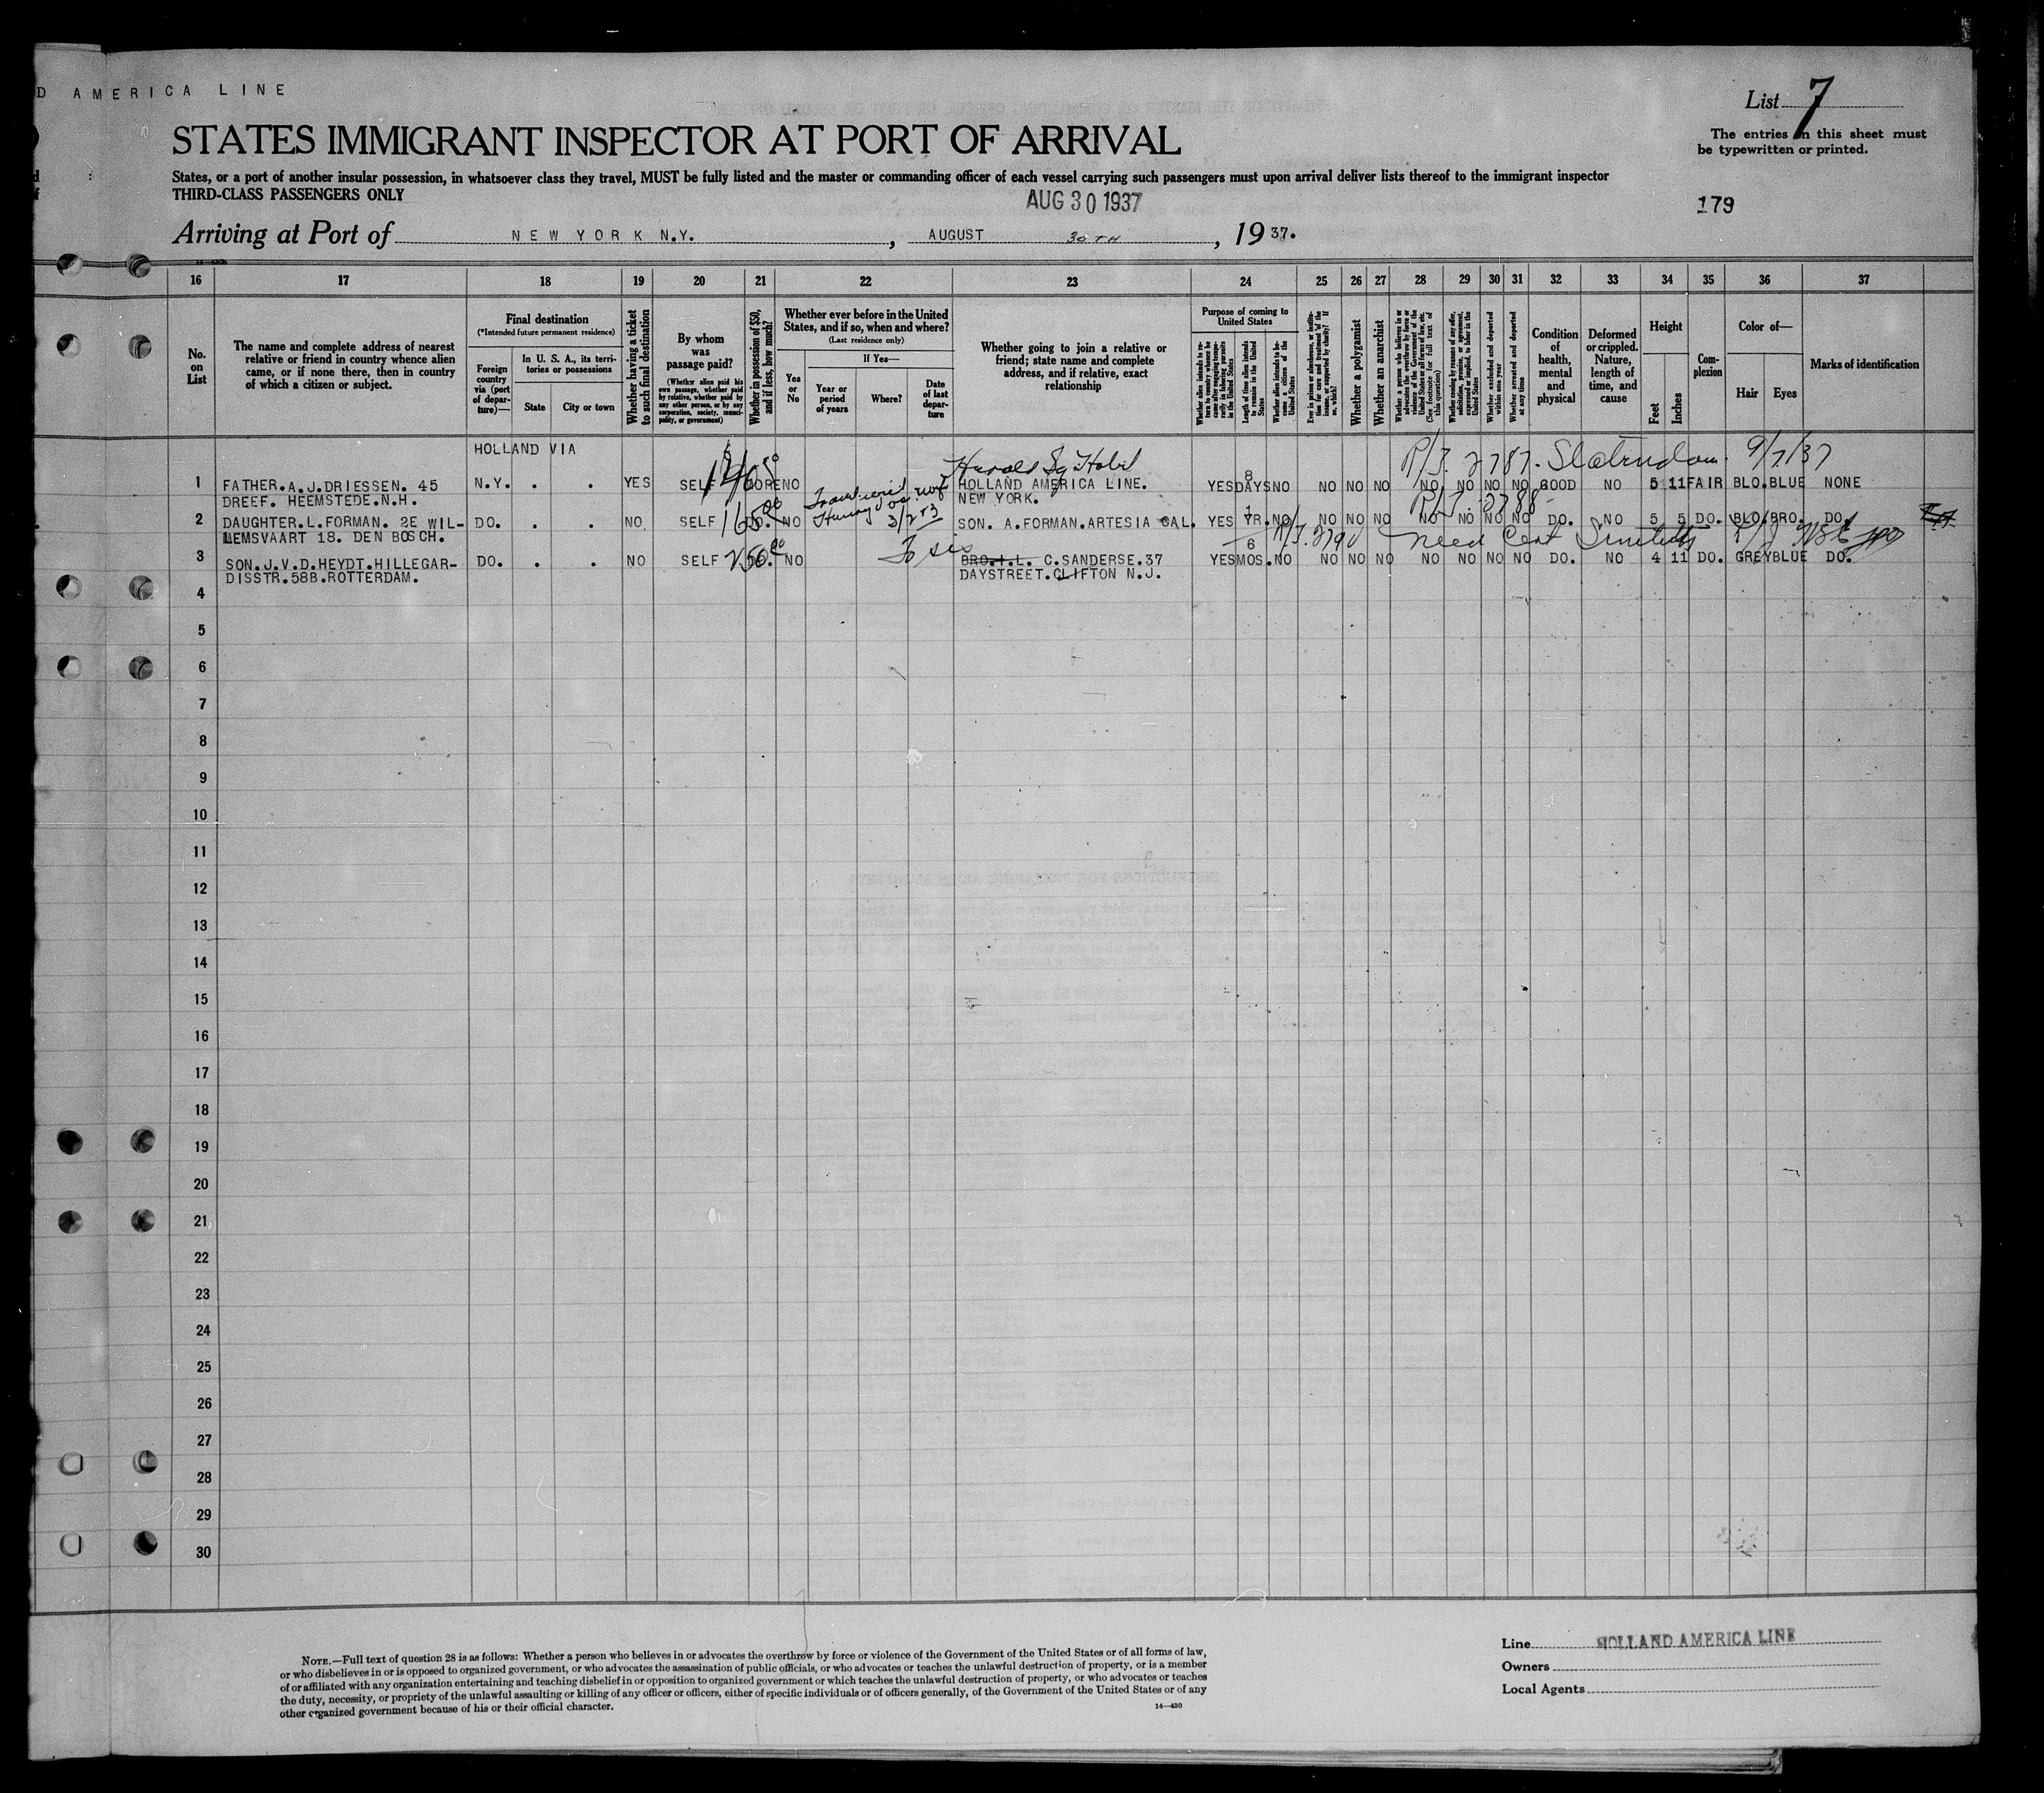 D AMERICA LINE
List 7
STATES IMMIGRANT INSPECTOR AT PORT OF ARRIVAL
The entries on this sheet must
be typewritten or printed.
States, or a port of another insular possession, in whatsoever class they travel, MUST be fully listed and the master or commanding officer of each vessel carrying such passengers must upon arrival deliver lists thereof to the immigrant inspector
THIRD-CLASS PASSENGERS ONLY
AUG 30 1937
179
Arriving at Port of NEW YORK N.Y., AUGUST 30TH, 1937.
16 17 18 19 20 21 22 23 24 25 26 27 28 29 30 31 32 33 34 35 36 37
No. on List
The name and complete address of nearest relative or friend in country whence alien came, or if none there, then in country of which a citizen or subject.
Final destination
(*Intended future permanent residence)
Foreign country via (port of departure)—
In U. S. A., its territories or possessions
State
City or town
Whether having a ticket to such final destination
By whom was passage paid?
(Whether alien paid his own passage, whether paid by relative, whether paid by any other person, or by any corporation, society, municipality, or government)
Whether in possession of $50, and if less, how much?
Whether ever before in the United States, and if so, when and where?
(Last residence only)
Yes or No
If Yes—
Year or period of years
Where?
Date of last departure
Whether going to join a relative or friend; state name and complete address, and if relative, exact relationship
Purpose of coming to United States
Length of time alien intends to remain in the United States
Whether alien intends to become a citizen of the United States
Whether a polygamist
Whether an anarchist
Whether excluded and deported within one year
Whether arrested and deported at any time
Condition of health, mental and physical
Deformed or crippled. Nature, length of time, and cause
Height
Feet
Inches
Complexion
Color of—
Hair
Eyes
Marks of identification
HOLLAND VIA
Harold Sq Hotel
R/J. 2787. Slatendam 9/7/37
1 FATHER.A.J.DRIESSEN. 45 N.Y. . . YES SELF NO HOLLAND AMERICA LINE. YES 8 DAYS NO NO NO NO NO NO NO NO GOOD NO 5 11 FAIR BLO. BLUE NONE
DREEF. HEEMSTEDE.N.H. NEW YORK.
R/J. 2788
2 DAUGHTER.L.FORMAN. 2E WIL- DO. . . NO SELF DO. NO SON. A.FORMAN.ARTESIA CAL. YES 1 YR. NO NO NO NO NO NO NO NO DO. NO 5 5 DO. BLO BRO. DO.
LEMSVAART 18. DEN BOSCH.
3 SON.J.V.D.HEYDT.HILLEGAR- DO. . . NO SELF DO. NO To sis BRO.I.L. C.SANDERSE.37 YES 6 MOS. NO NO NO NO NO NO NO NO DO. NO 4 11 DO. GREY BLUE DO.
DISSTR.58B.ROTTERDAM. DAYSTREET.CLIFTON N.J.
4
5
6
7
8
9
10
11
12
13
14
15
16
17
18
19
20
21
22
23
24
25
26
27
28
29
30
NOTE.—Full text of question 28 is as follows: Whether a person who believes in or advocates the overthrow by force or violence of the Government of the United States or of all forms of law,
or who disbelieves in or is opposed to organized government, or who advocates the assassination of public officials, or who advocates or teaches the unlawful destruction of property, or is a member
of or affiliated with any organization entertaining and teaching disbelief in or opposition to organized government or which teaches the unlawful destruction of property, or who advocates or teaches
the duty, necessity, or propriety of the unlawful assaulting or killing of any officer or officers, either of specific individuals or of officers generally, of the Government of the United States or of any
other organized government because of his or their official character.
14—430
Line HOLLAND AMERICA LINE
Owners
Local Agents